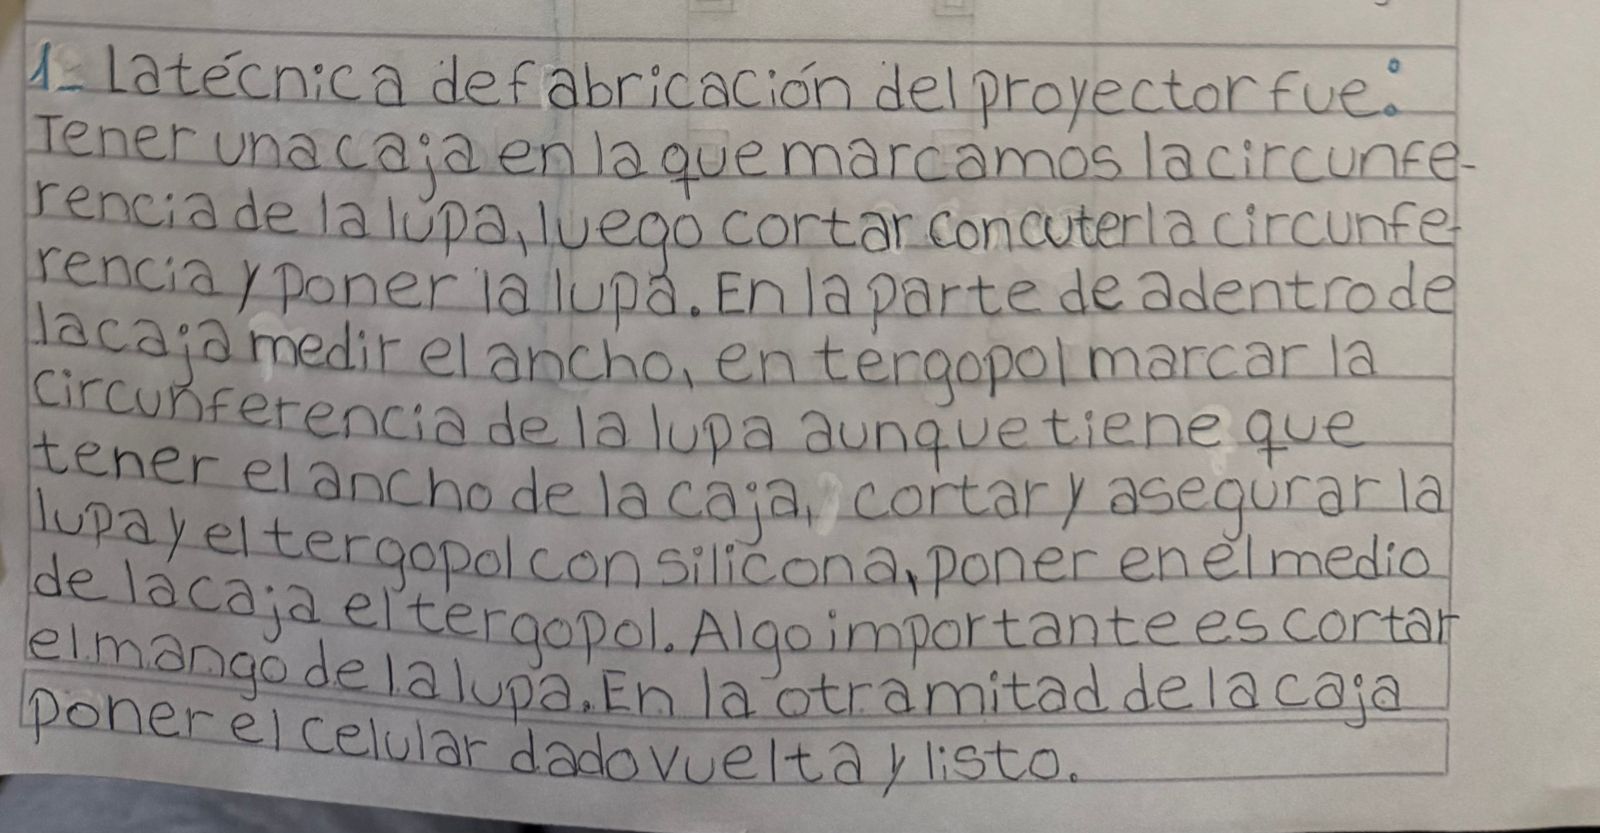 1- La técnica de fabricación del proyector fue:
Tener una caja en la que marcamos la circunfe-
rencia de la lupa, luego cortar con cuter la circunfe-
rencia y poner la lupa. En la parte de adentro de
la caja medir el ancho, en tergopol marcar la
circunferencia de la lupa aunque tiene que
tener el ancho de la caja, cortar y asegurar la
lupa y el tergopol con silicona, poner en el medio
de la caja el tergopol. Algo importante es cortar
el mango de la lupa. En la otra mitad de la caja
poner el celular dado vuelta y listo.